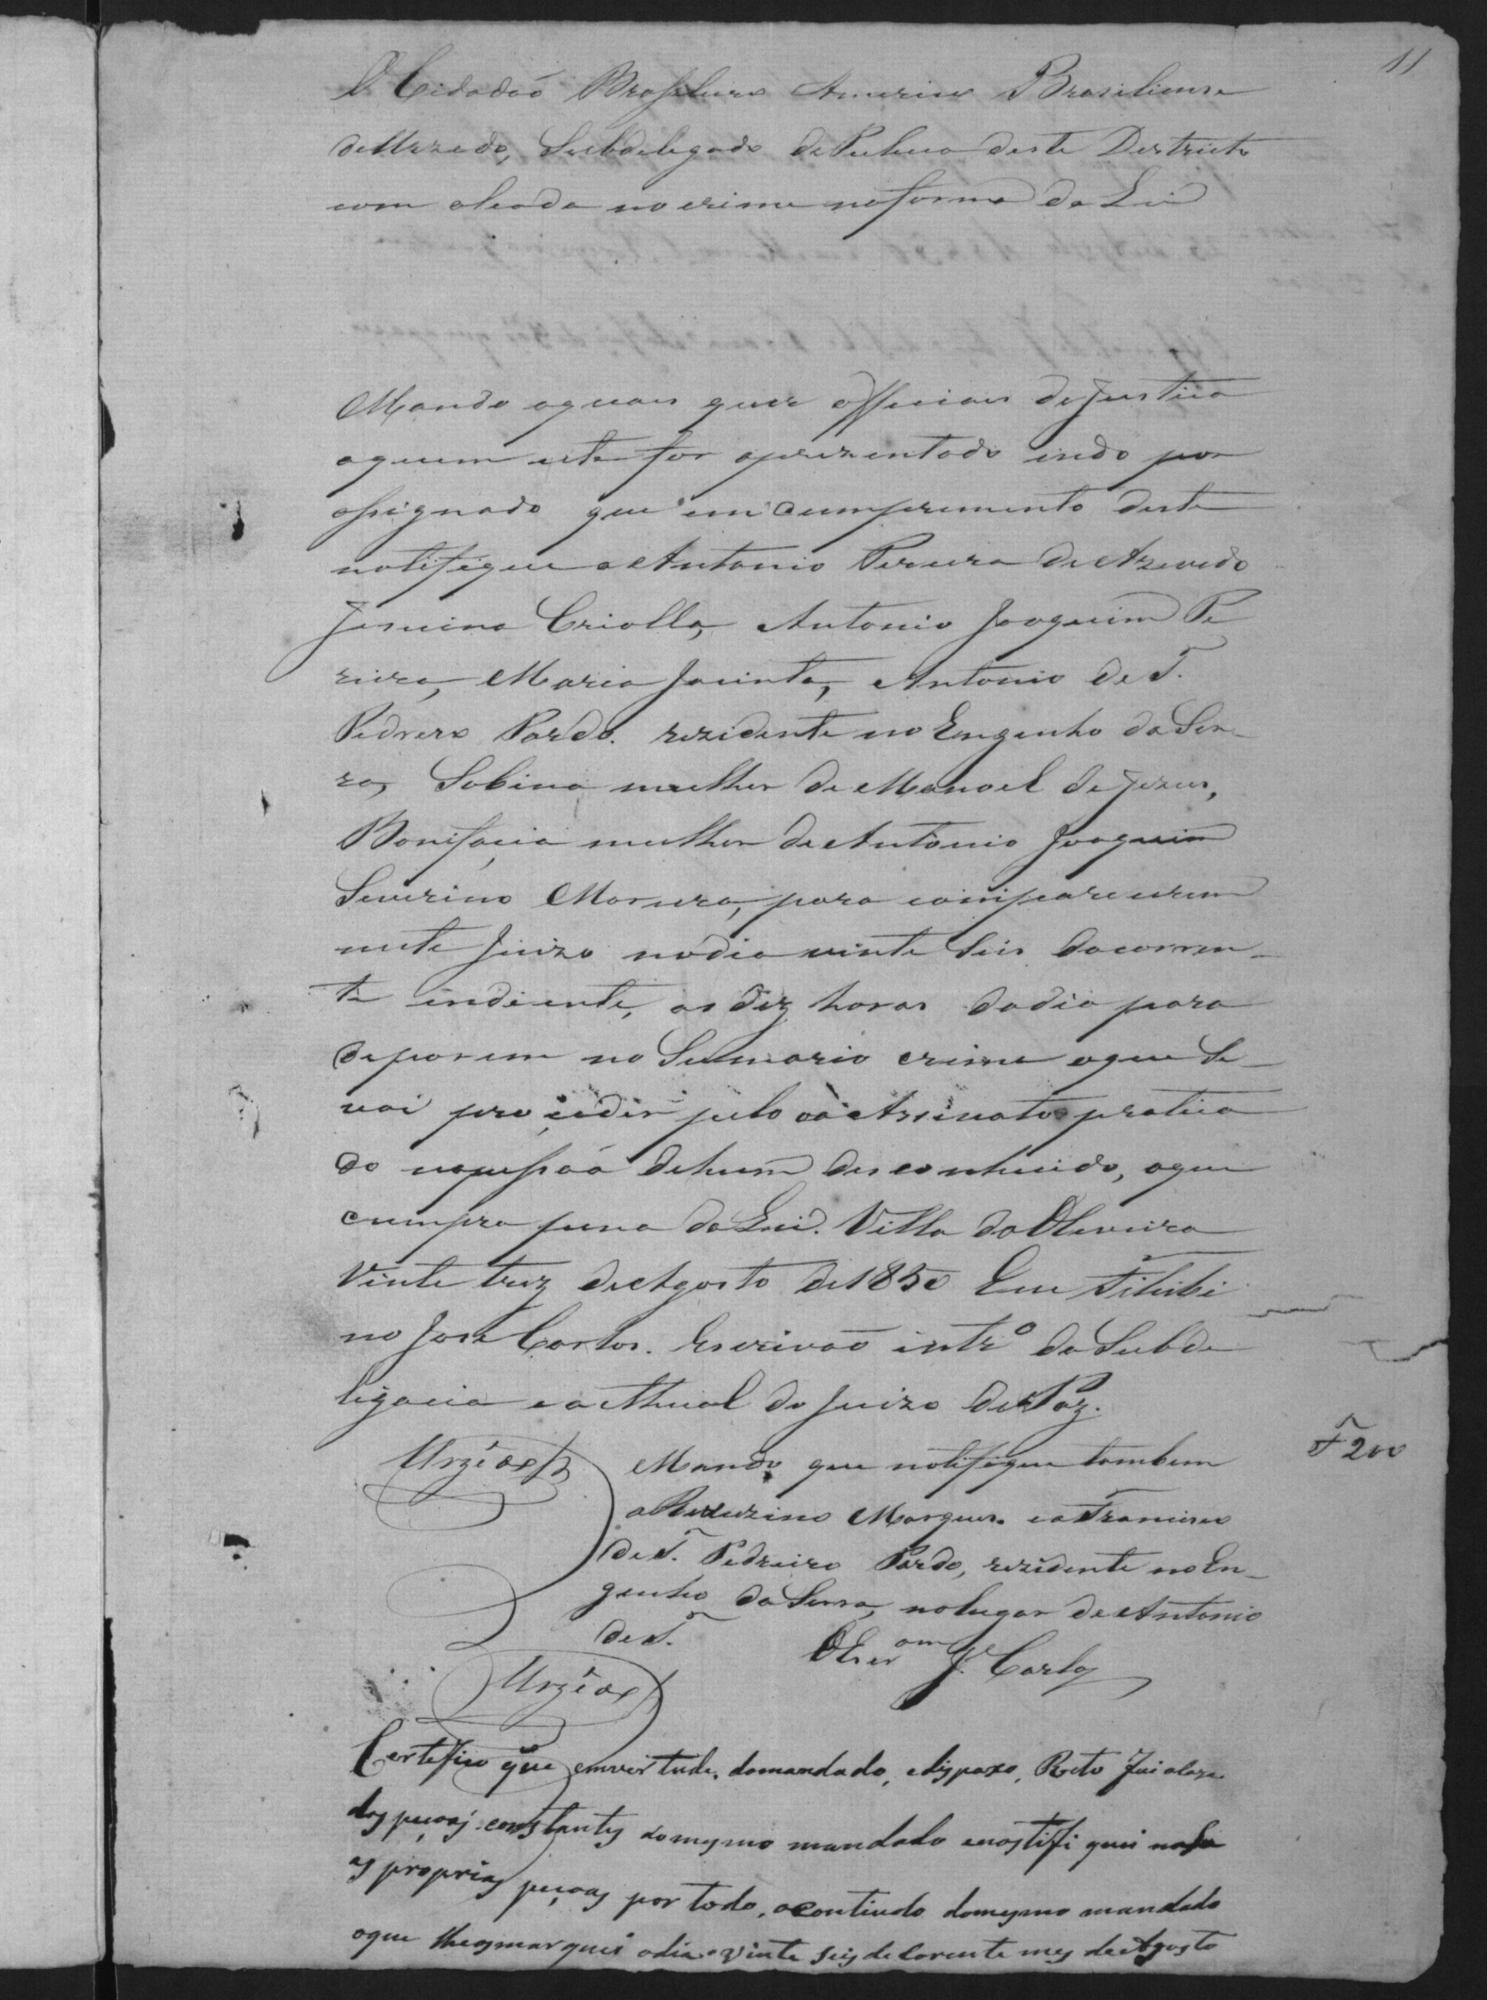 11
O Cidadaõ Brasileiro Americo Brasiliense
de Urzedo, Subdelegado de Policia deste Districto
com alcada no crime na forma da Lei
Mando a quais quer officiais de justica
a quem este for aprezentado indo por
assignado que em cumprimento deste
notifique a Antonio Pereira de Azevedo
Jenuina Criolla, Antonio Joaquim Pe
reira, Maria Jacinta, Antonio de T.
Pedrero Pardo. rezidente no Engenho da Ser-
ra, Sabina mulher de Manoel de Jezus,
Bonifacia mulher de Antonio Joaquim
Severino Moreira, para comparecerem
neste Juizo no dia vinte Seis do corren-
te indiente, as diz horas do dia para
deporem no Sumario crime a que Se
vai proceder pelo asasinato pratica
do na pessoa de hum desconhecido, o que
cumpra pena da Lei. Villa da Oliveira
Vinte trez de Agosto de 1850 Eu
no Jose Carlos. Escrivaõ intrº da Subde
legacia e actual do Juizo de Paz.
Mando que notifique tambem
a Marques. e a Francisco
de T. Pedreiro Pardo, rezidente no En-
genho da Serra, no lugar de Antonio
de T.
F 200
J. Carlos
Certifico que em vertude, do mandado, e dispaxo, Reto fui a caza
das pecoas constantes do mesmo mandado e nostifiquei
as proprias pecoas por todo, o contiudo do mesmo mandado
o que lhes marquei o dia vinte seis de Corente mes de Agosto